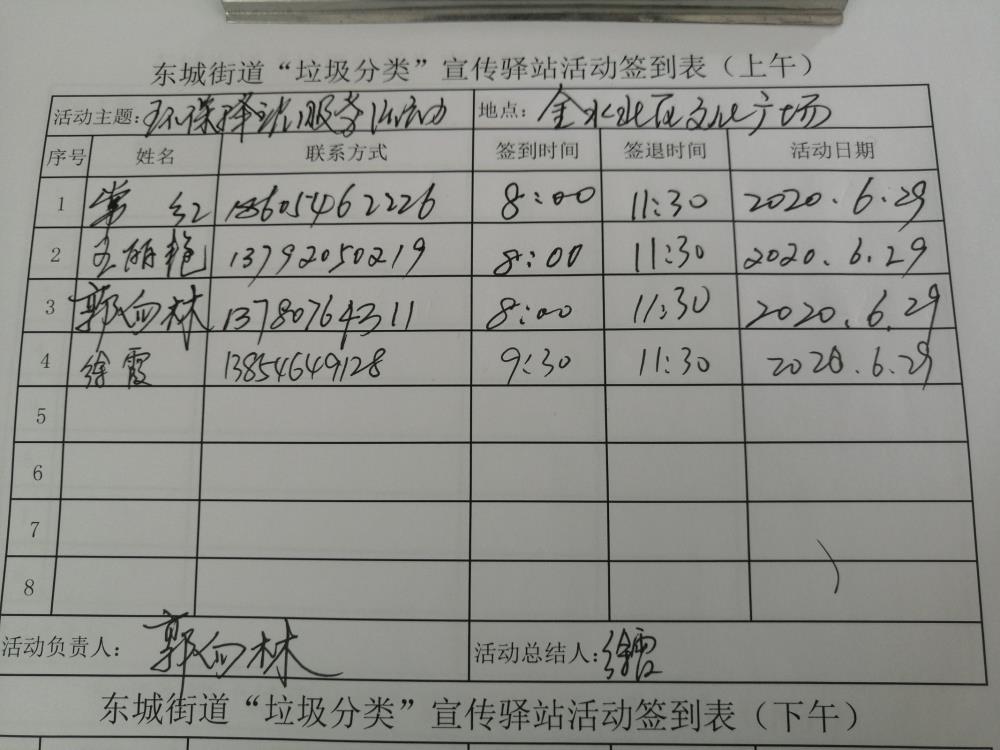 东城街道“垃圾分类”宣传驿站活动签到表（上午）
活动主题: 环保驿站服务活动 地点: 金水社区文化广场
序号 姓名 联系方式 签到时间 签退时间 活动日期
1 常红 18605462226 8:00 11:30 2020.6.29
2 王丽艳 13792050219 8:00 11:30 2020.6.29
3 郭向林 13780764311 8:00 11:30 2020.6.29
4 徐霞 13854649128 9:30 11:30 2020.6.29
5
6
7
8
活动负责人: 郭向林 活动总结人: 徐霞
东城街道“垃圾分类”宣传驿站活动签到表（下午）